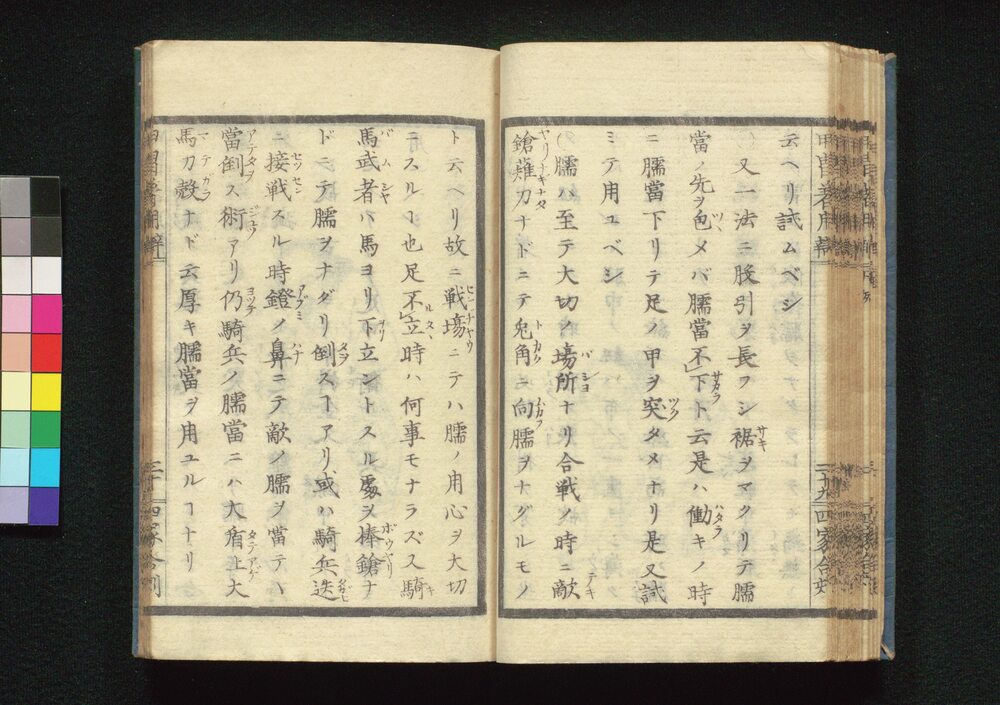 云ヘリ試ムベシ
又一法ニ股引ヲ長フシ裾ヲマクリテ臑
當ノ先ヲ包メバ臑當不下ト云是ハ働キノ時
ニ臑當下リテ足ノ甲ヲ突タメナリ是又試
ミテ用ユベシ
臑ハ至テ大切ノ場所ナリ合戦ノ時ニ敵
鎗薙刀ナドニテ兎角ニ向臑ヲナグルモノ
ト云ヘリ故ニ戦場ニテハ臑ノ用心ヲ大切
ニスルヿ也足不立時ハ何事モナラズス騎
馬武者ハ馬ヨリ下立ントスル處ヲ捧鎗ナ
ドニテ臑ヲナグリ倒スヿアリ或ハ騎兵迭
ニ接戦スル時鐙ノ鼻ニテ敵ノ臑ヲ當テヽ
當倒ス術アリ仍騎兵ノ臑當ニハ大盾上大
馬刀殻ナド云厚キ臑當ヲ用ユルヿナリ
甲冑着用辨
二十九
四家合刻